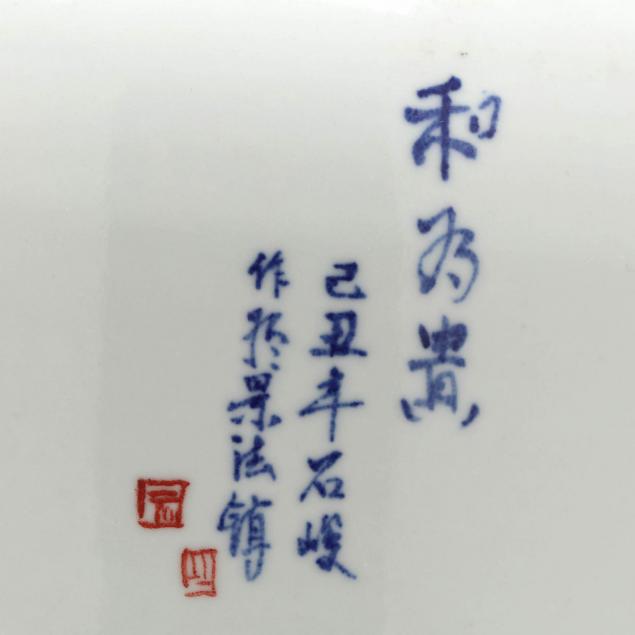 和为貴
己丑年石峻
作於景德镇